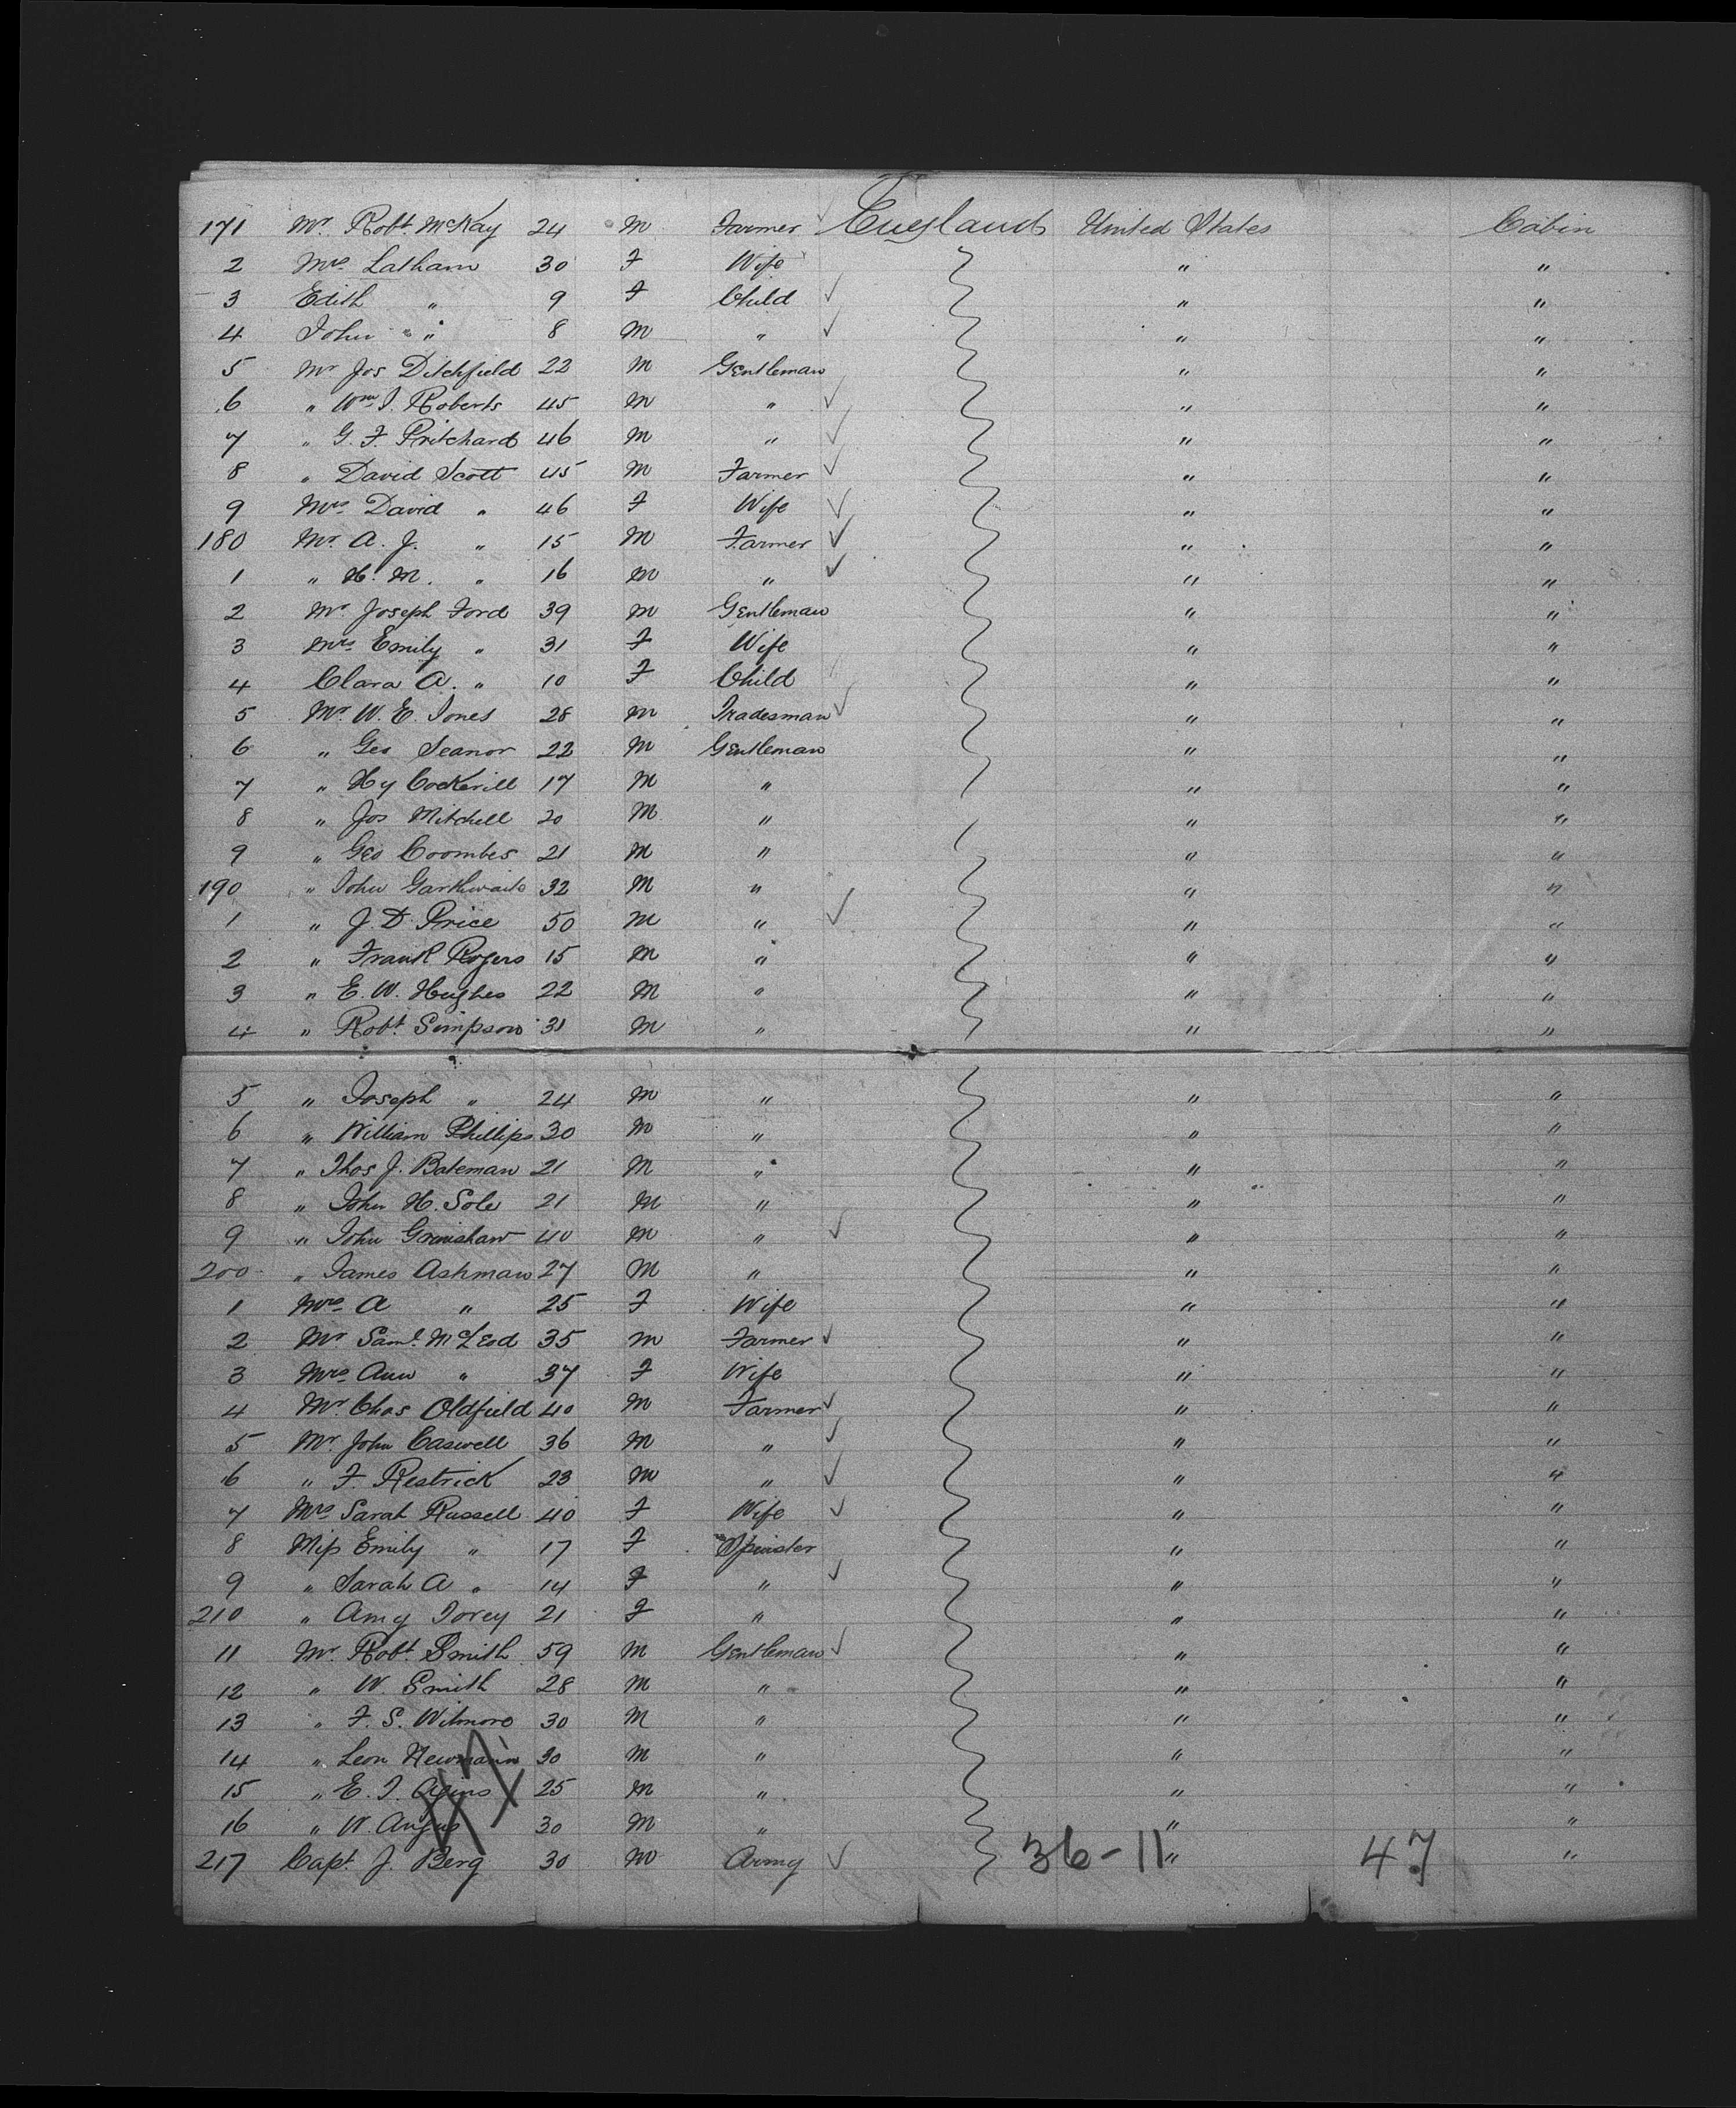 171 Mr. Robt. McKay 24 M Farmer England United States Cabin
2 Mrs. Latham 30 F Wife " "
3 Edith " 9 F Child " "
4 John " 8 M " " "
5 Mr Jos Ditchfield 22 M Gentleman " "
6 " Wm. J. Roberts 45 M " " "
7 " G. F. Pritchard 46 M " " "
8 " David Scott 45 M Farmer " "
9 Mrs. David " 46 F Wife " "
180 Mr. A. J. " 15 M Farmer " "
1 " H. M. " 16 M " " "
2 Mr Joseph Ford 39 M Gentleman " "
3 Mrs Emily " 31 F Wife " "
4 Clara A. " 10 F Child " "
5 Mr. W. E. Jones 28 M Tradesman " "
6 " Geo Seanor 22 M Gentleman " "
7 " Hy Cockerill 17 M " " "
8 " Jos Mitchell 20 M " " "
9 " Geo Coombes 21 M " " "
190 " John Garthwaite 32 M " " "
1 " J. D. Price 50 M " " "
2 " Frank Rogers 15 M " " "
3 " E. W. Hughes 22 M " " "
4 " Robt. Simpson 31 M " " "
5 " Joseph " 24 M " " "
6 " William Phillips 30 M " " "
7 " Thos J. Bateman 21 M " " "
8 " John H. Sole 21 M " " "
9 " John Grimshaw 40 M " " "
200 " James Ashman 27 M " " "
1 Mrs A " 25 F Wife " "
2 Mr Saml. McLeod 35 M Farmer " "
3 Mrs Ann " 37 F Wife " "
4 Mr. Chas Oldfield 40 M Farmer " "
5 Mr. John Caswell 36 M " " "
6 " F. Restrick 23 M " " "
7 Mrs Sarah Russell 40 F Wife " "
8 Miss Emily " 17 F Spinster " "
9 " Sarah A " 14 F " " "
210 " Amy Torey 21 F " " "
11 Mr. Robt. Smith 59 M Gentleman " "
12 " W. Smith 28 M " " "
13 " F. S. Witmore 30 M " " "
14 " Leon Newmann 30 M " " "
15 " E. J. 25 M " " "
16 " W. Angus 30 M " " "
217 Capt. J. Berg 30 M Army 36-11 " 47 "